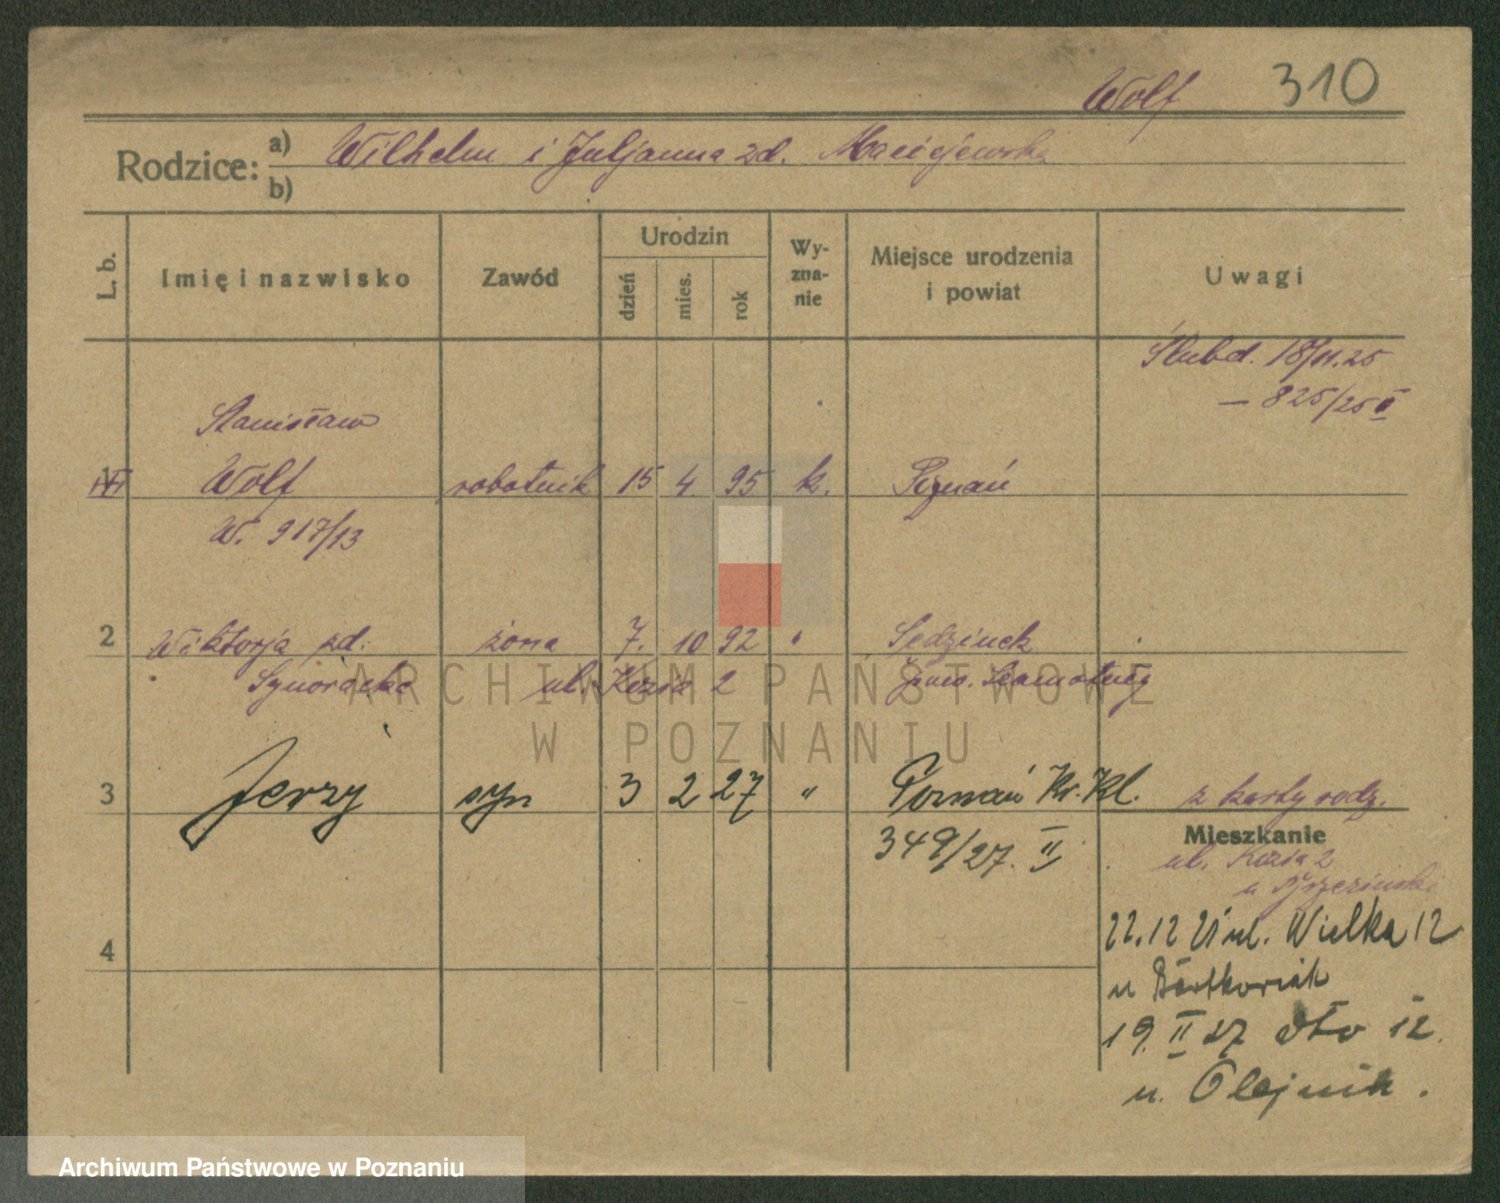 Wolf 310
Rodzice: a) Wilhelm i Juljanna zd. Maciejewska
b)
L. b. Imię i nazwisko Zawód Urodzin dzień mies. rok Wy-zna-nie Miejsce urodzenia i powiat Uwagi
Ślub d. 18/11.25
— 825/25 II
Stanisław
1 Wolf robotnik 15 4 95 k. Poznań
W. 917/13
2 Wiktorja zd. żona 7. 10 92 " Sędzinek
ul. Kozia 2 pow. Szamotuły
3 Jerzy syn 3 2 27 " Poznań Kr. Kl. z karty rodz.
349/27. II
Mieszkanie
ul. Kozia 2
22.12 25 ul. Wielka 12
4
u
19. II 27 dto 12.
u. Olejnik.
ARCHIWUM PAŃSTWOWE
W POZNANIU
Archiwum Państwowe w Poznaniu